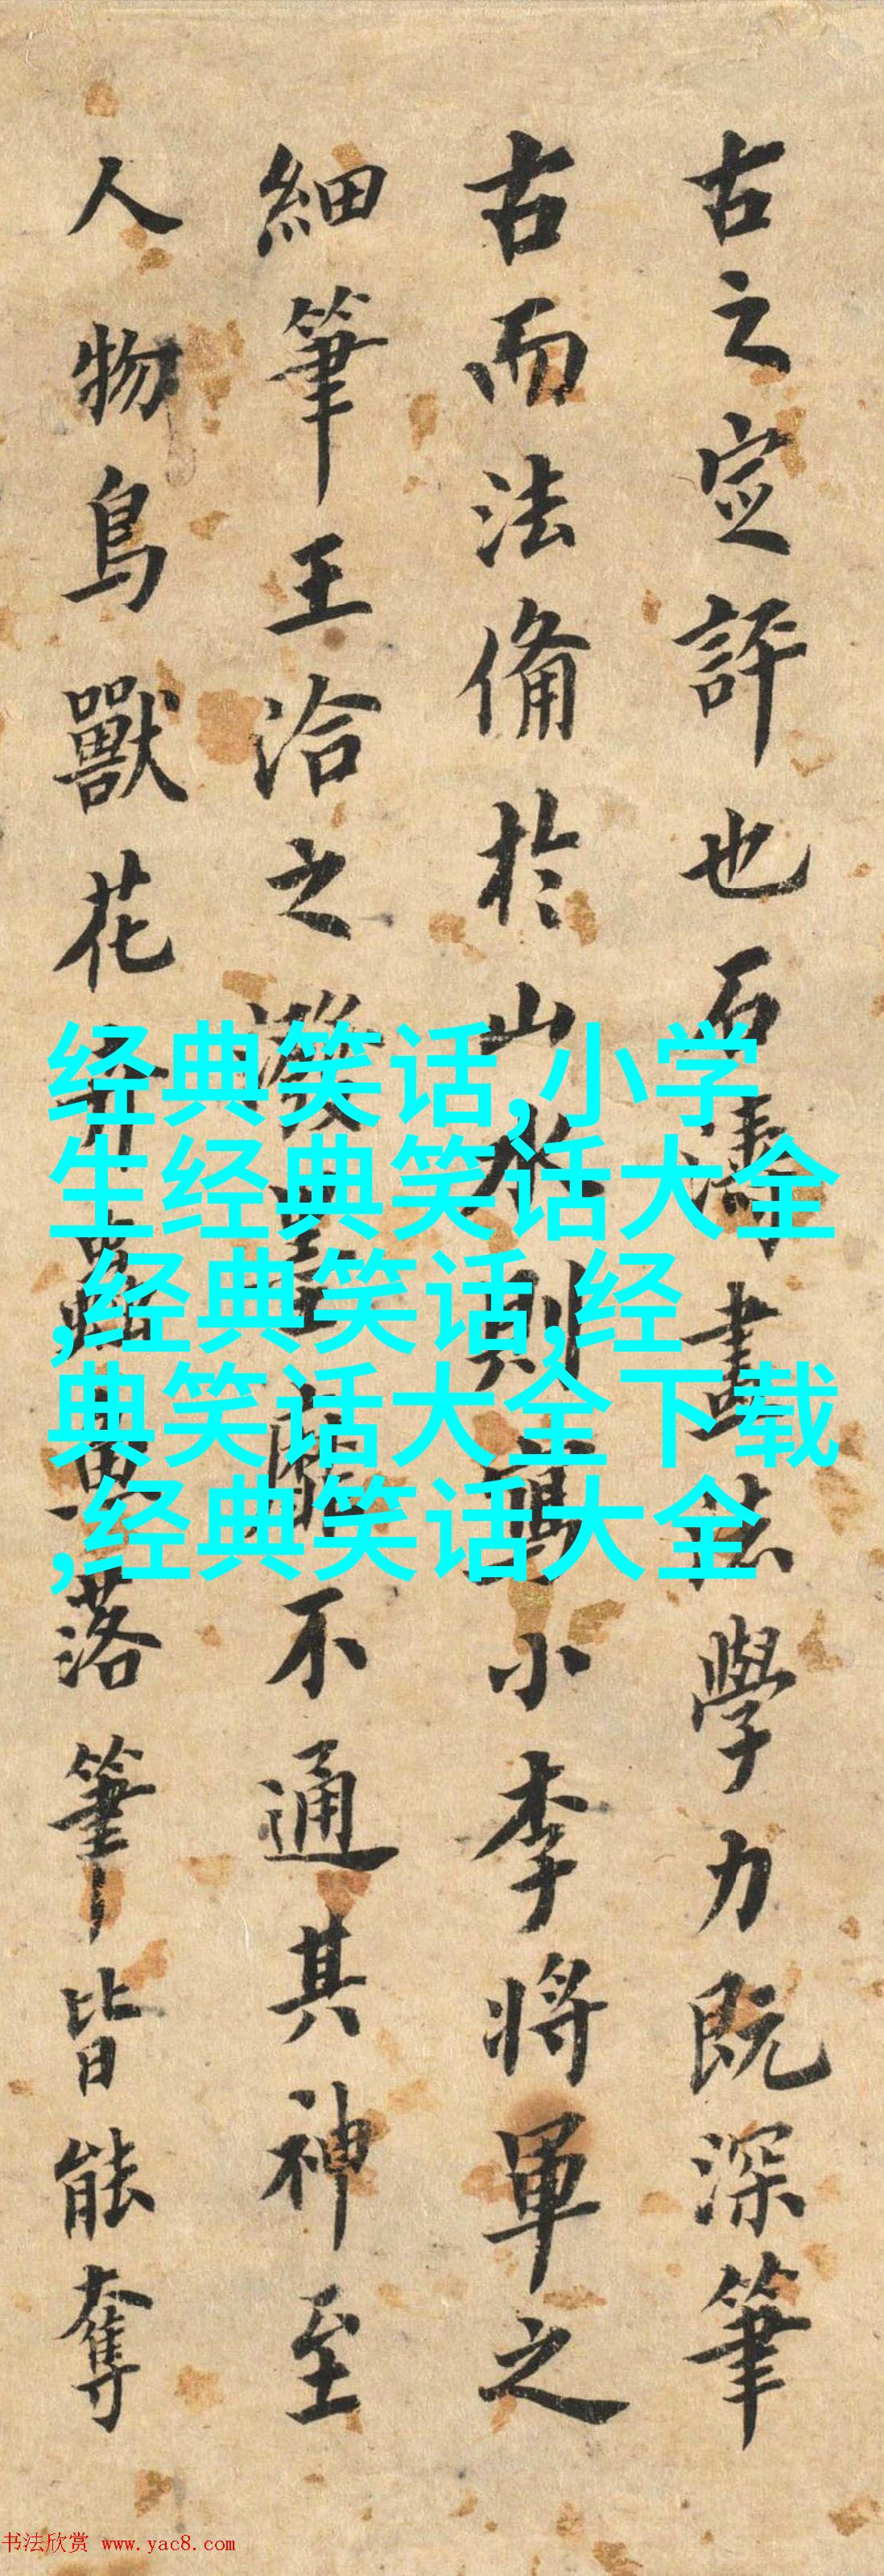 古之定評也石濤畫法學力既深筆
古而法備於山水則寫小李將軍之
細筆王洽之潑墨靡不通其神至
人物鳥獸花卉蟲魚落筆皆能奪
经典笑话,小学
生经典笑话大全
,经典笑话,经
典笑话大全下载
,经典笑话大全
书法欣赏 www.yac8.com